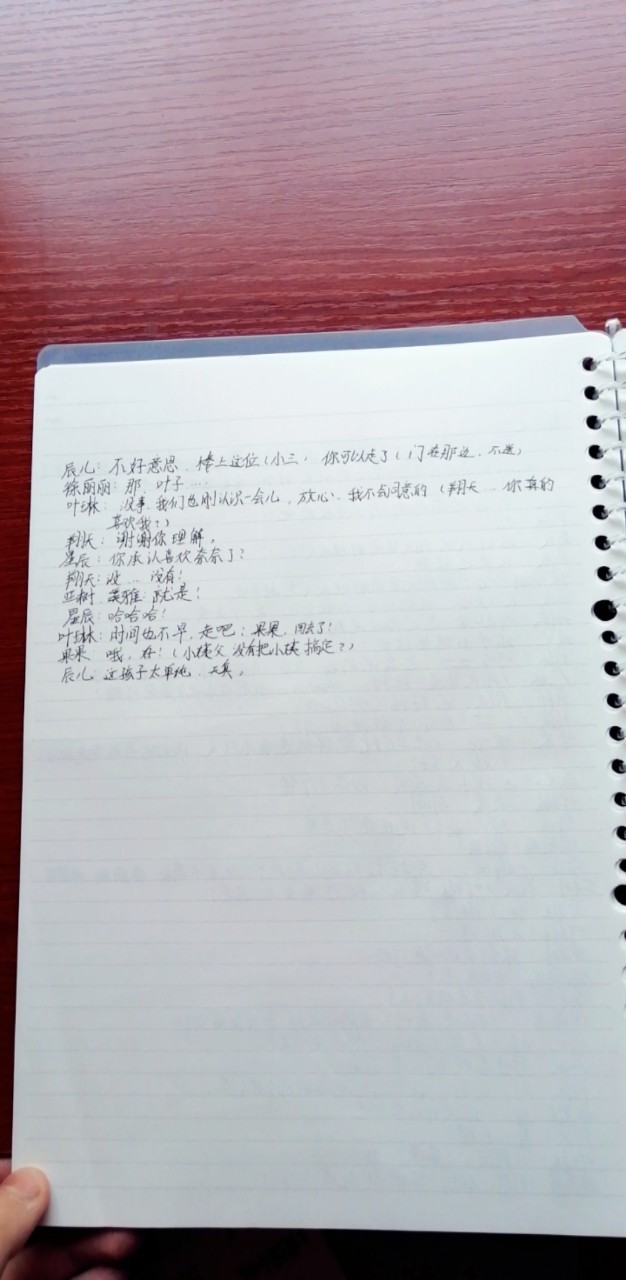 辰儿:不好意思.楼上这位(小三)你可以走了(门在那边.不送)
徐丽丽:那.叶子....
叶琳:没事.我们也刚认识一会儿.放心.我不会同意的(翔天..你真的
喜欢我?)
翔天:谢谢你理解。
星辰:你承认喜欢奈奈了?
翔天:没...没有!
亚树.英雅:就是!
星辰:哈哈哈!
叶琳:时间也不早.走吧;果果.回去了!
果果:哦.在!(小樱父没有把小樱搞定?)
辰儿:这孩子太单纯.天真。